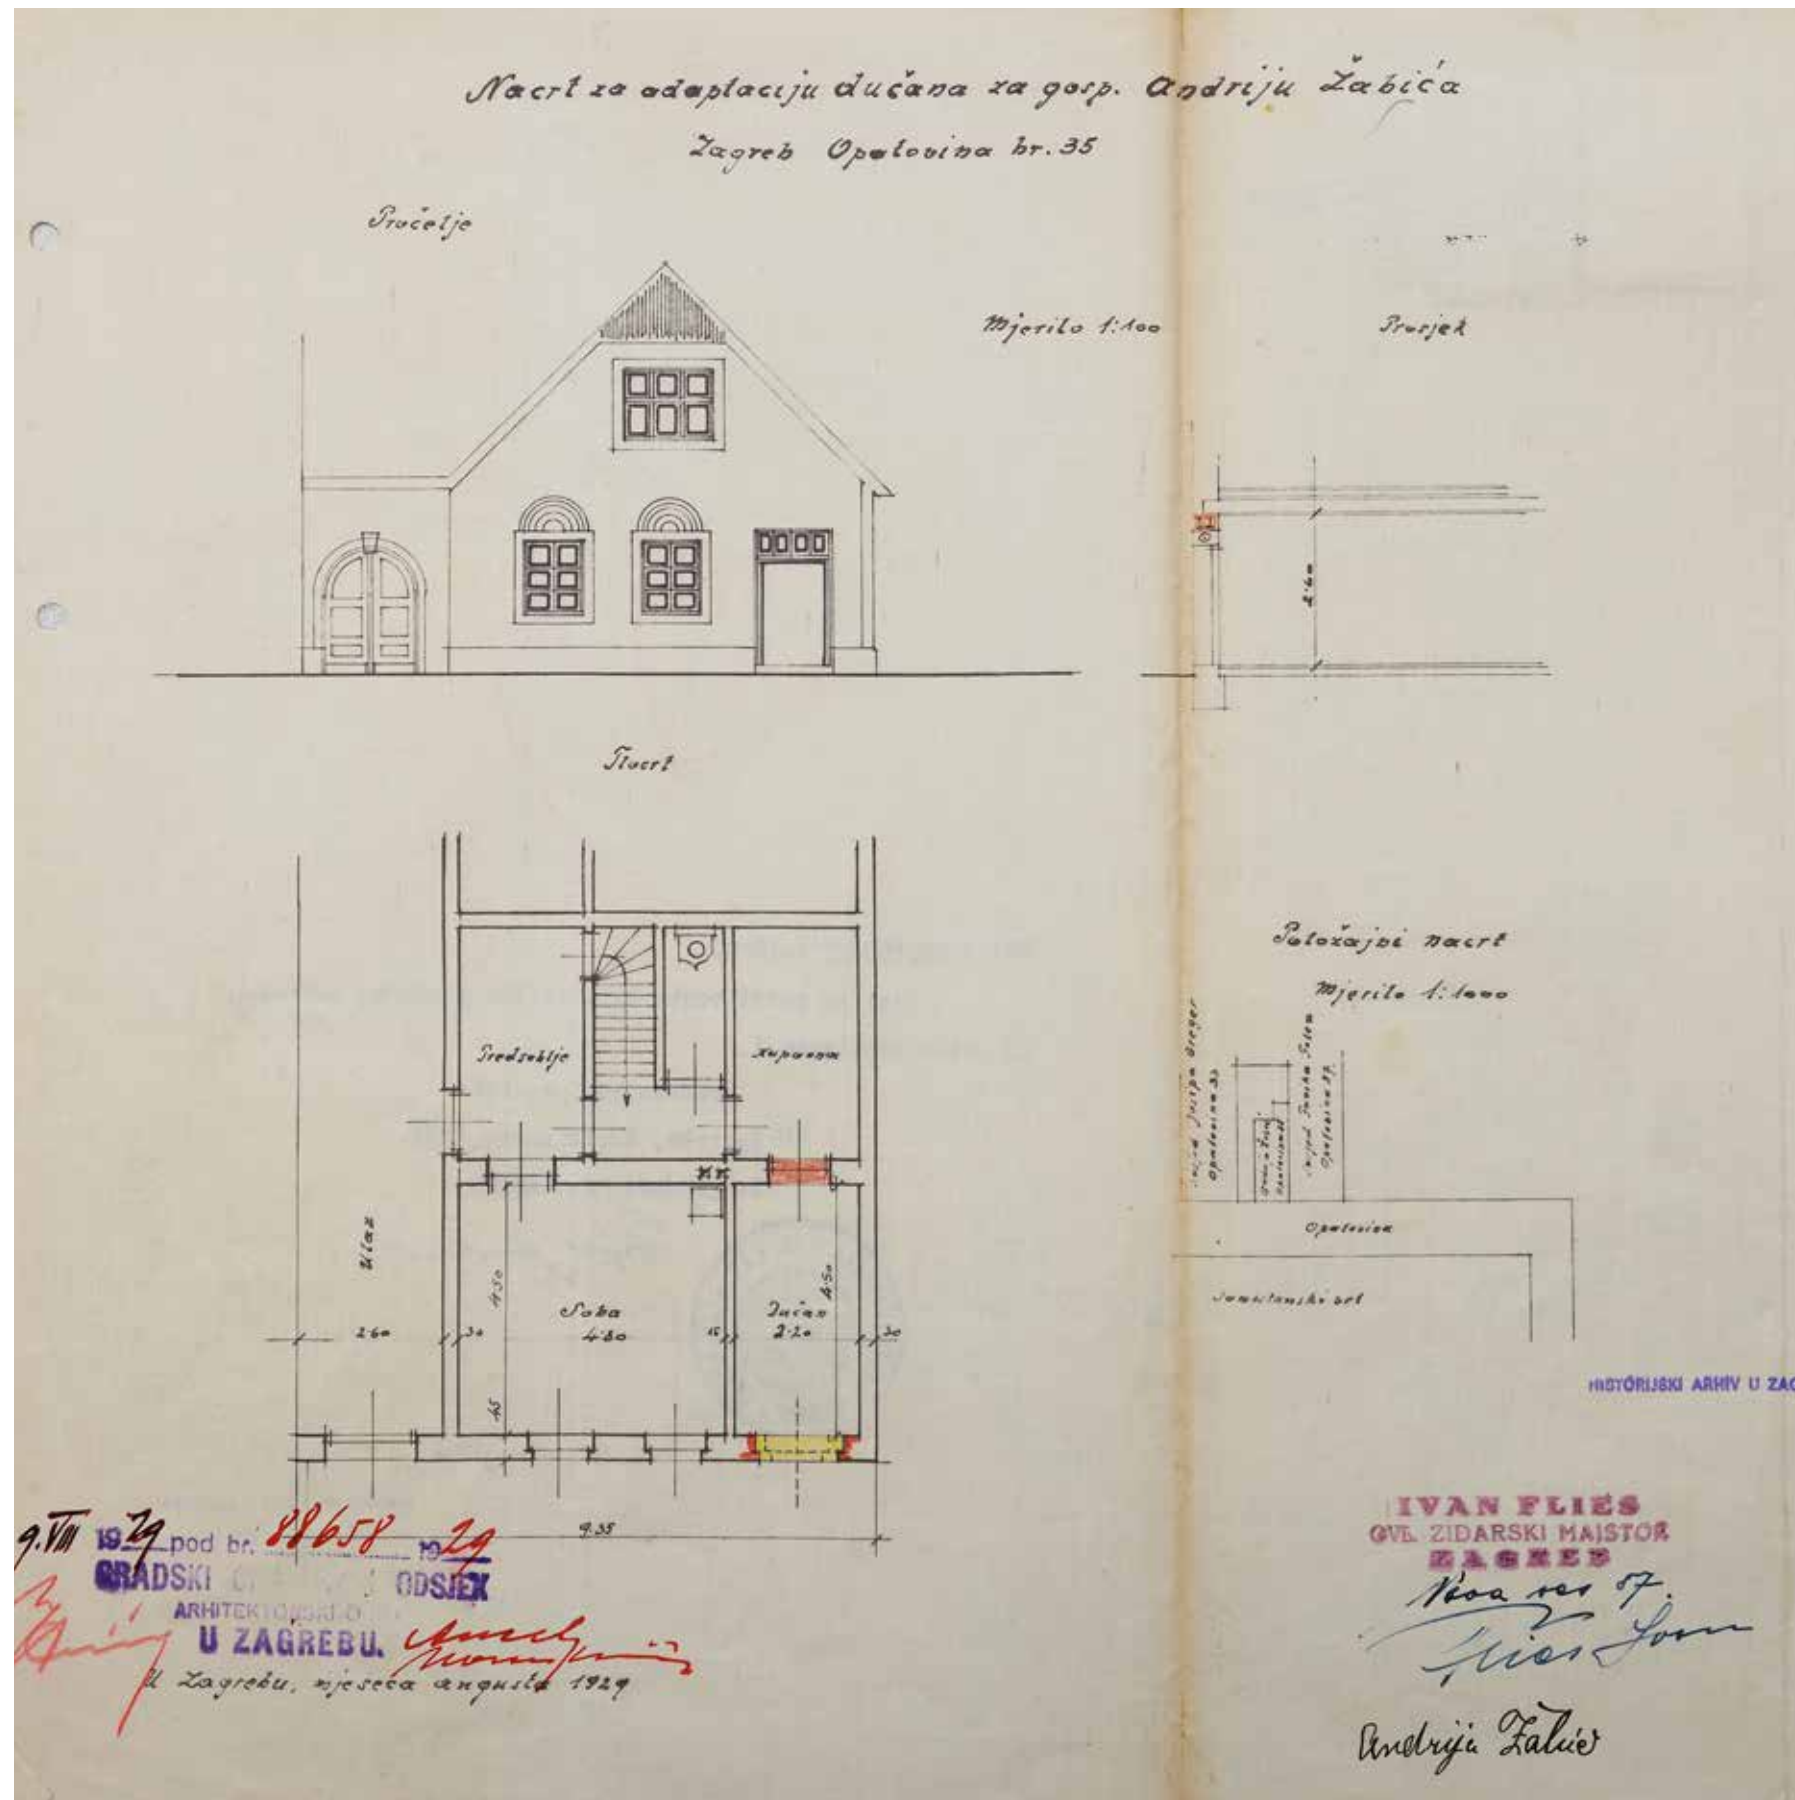 Nacrt za adaptaciju dučana za gosp. Andriju Žabića
Zagreb Opatovina br. 35
Pročelje
Mjerilo 1:100
Presjek
2·60
Tlocrt
Predsoblje
Kupaona
Ulaz
4·50
Soba
4·80
Dučan
2·20
4·50
2·60
30
15
30
45
9·35
Položajni nacrt
Mjerilo 1:1000
Opatovina 33
Opatovina 37
Opatovina
HISTORIJSKI ARHIV U ZAG
9.VIII 1929 pod br. 88658 1929
GRADSKI ODSJEK
U ZAGREBU.
U Zagrebu, mjeseca augusta 1929
IVAN FLIES
OVL. ZIDARSKI MAJSTOR
ZAGREB
Nova ves 87.
Flies Ivan
Andrija Žabić